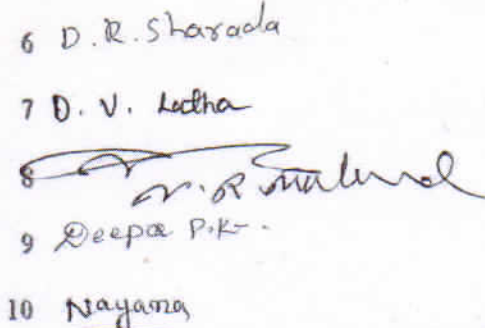 6 D. R. Sharada
7 D. V. Latha
8 N. R.
9 Deepa P.K.
10 Nayana